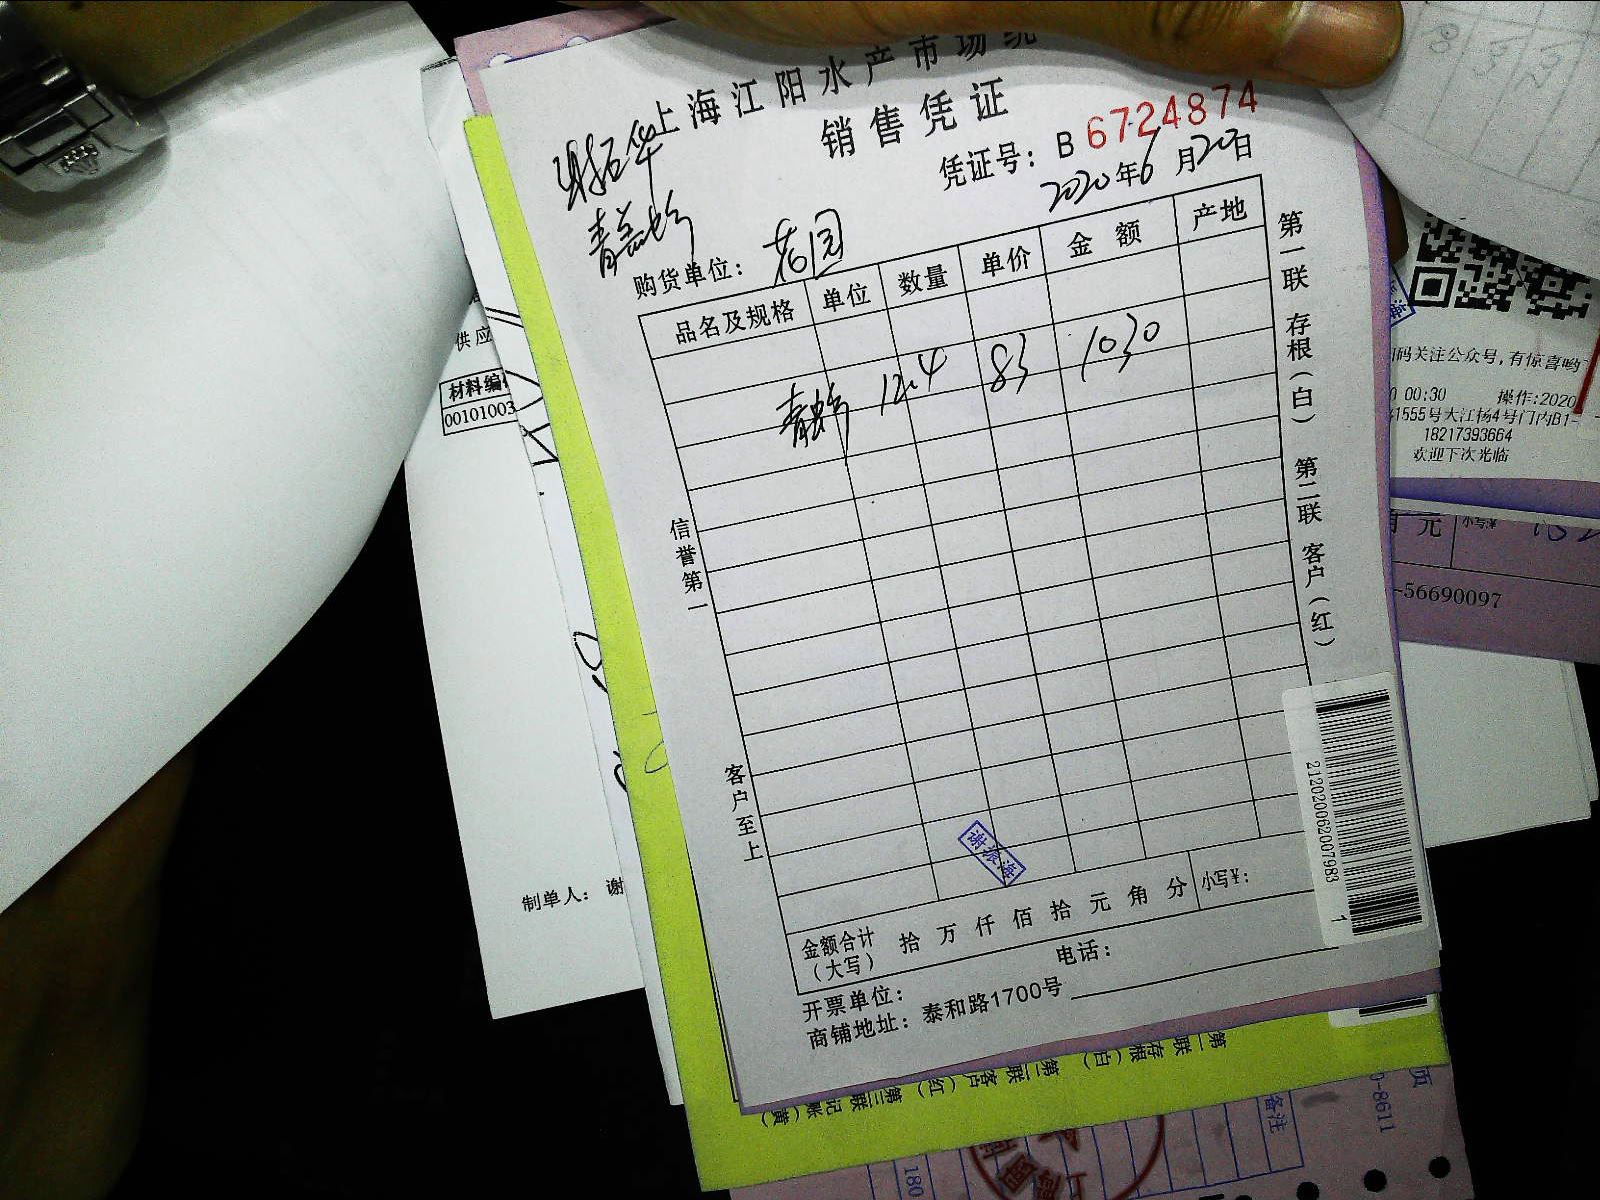 上海江阳水产市场统
销售凭证
凭证号：B 6724874
2020年6月20日
购货单位：花园
品名及规格 单位 数量 单价 金额 产地
12.4 83 1030
信誉第一
客户至上
第一联 存根（白） 第二联 客户（红）
谢振海
金额合计（大写） 拾 万 仟 佰 拾 元 角 分 小写￥：
开票单位： 电话：
商铺地址：泰和路1700号
2120202062007983
1
供应
材料编
00101003
制单人：谢
码关注公众号,有惊喜哟
0 00:30 操作:2020
1555号大江杨4号门内B1-
18217393664
欢迎下次光临
元 小写￥
-56690097
第一联存根（白） 第二联客户（红） 第三联记账（黄）
页
0-8611
备注
180